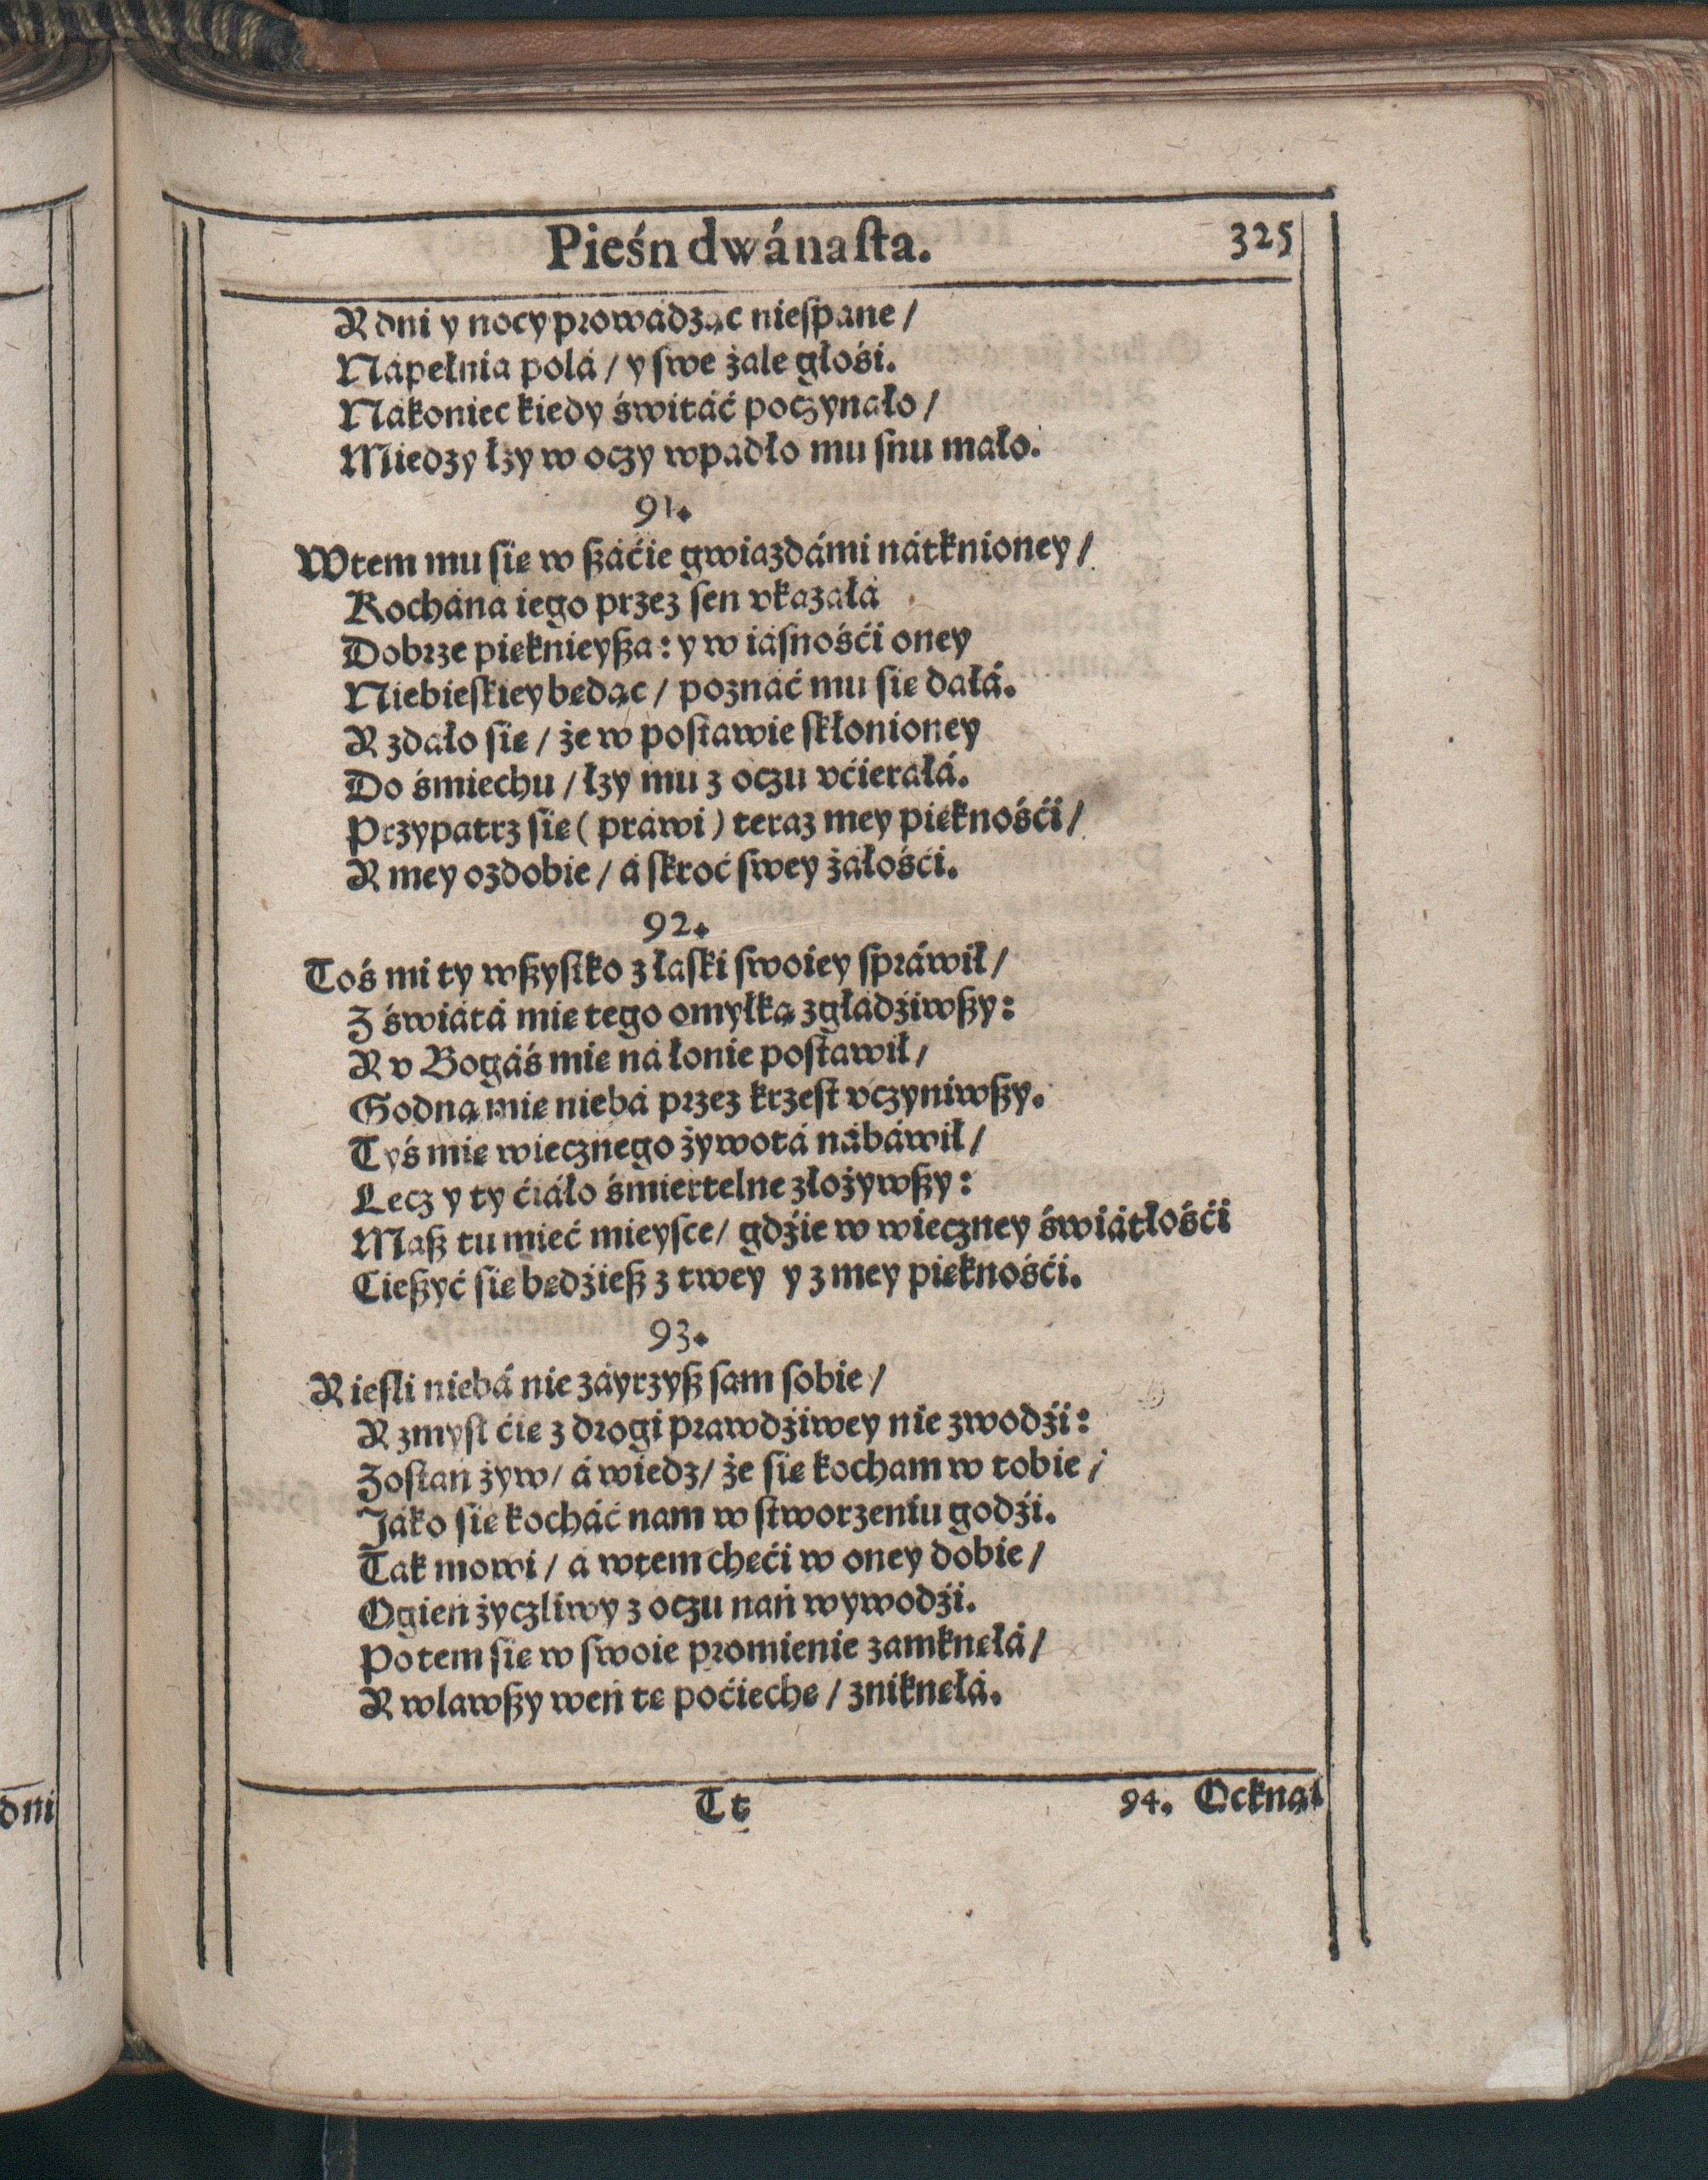 Pieśn dwánaſta.
325
A dni y nocy prowádząc nieſpane /
Nápełnia polá / y ſwe żale głośi.
Nákoniec kiedy świtáć poczynało /
Miedzy łzy w oczy wpadło mu ſnu máło.
91.
Wtem mu ſię w ßáćie gwiazdámi nátknioney /
Kochána iego przez ſen vkazáłá
Dobrze pięknieyßa: y w iáſnośći oney
Niebieſkiey będąc / poznáć mu ſię dáłá.
A zdało ſię / że w poſtawie ſkłonioney
Do śmiechu / łzy mu z oczu vćierałá.
Przypatrz ſię ( práwi ) teraz mey pięknośći /
A mey ozdobie / á ſkroć ſwey żáłośći.
92.
Toś mi ty wßyſtko z łaſki ſwoiey ſpráwił /
Z świátá mię tego omyłką zgłádźiwßy:
A v Bogáś mię ná łonie poſtáwił /
Godną mię niebá przez krzeſt vczyniwßy.
Tyś mię wiecznego żywotá nábáwił /
Lecz y ty ćiáło śmiertelne złożywßy:
Maß tu mieć mieyſce / gdźie w wieczney świátłośći
Cießyć ſię będźieß z twey y z mey pięknośći.
93.
A ieſli niebá nie záyrzyß ſam ſobie /
A zmyſł ćię z drogi prawdźiwey nie zwodźi:
Zoſtań żyw / á wiedz / że ſię kocham w tobie /
Jáko ſię kocháć nam w ſtworzeniu godźi.
Ták mowi / á wtem chęći w oney dobie /
Ogień życzliwy z oczu nań wywodźi.
Potem ſię w ſwoie promienie zámknęłá /
A wlawßy weń tę poćiechę / zniknęłá.
Tt
94. Ocknął
dni